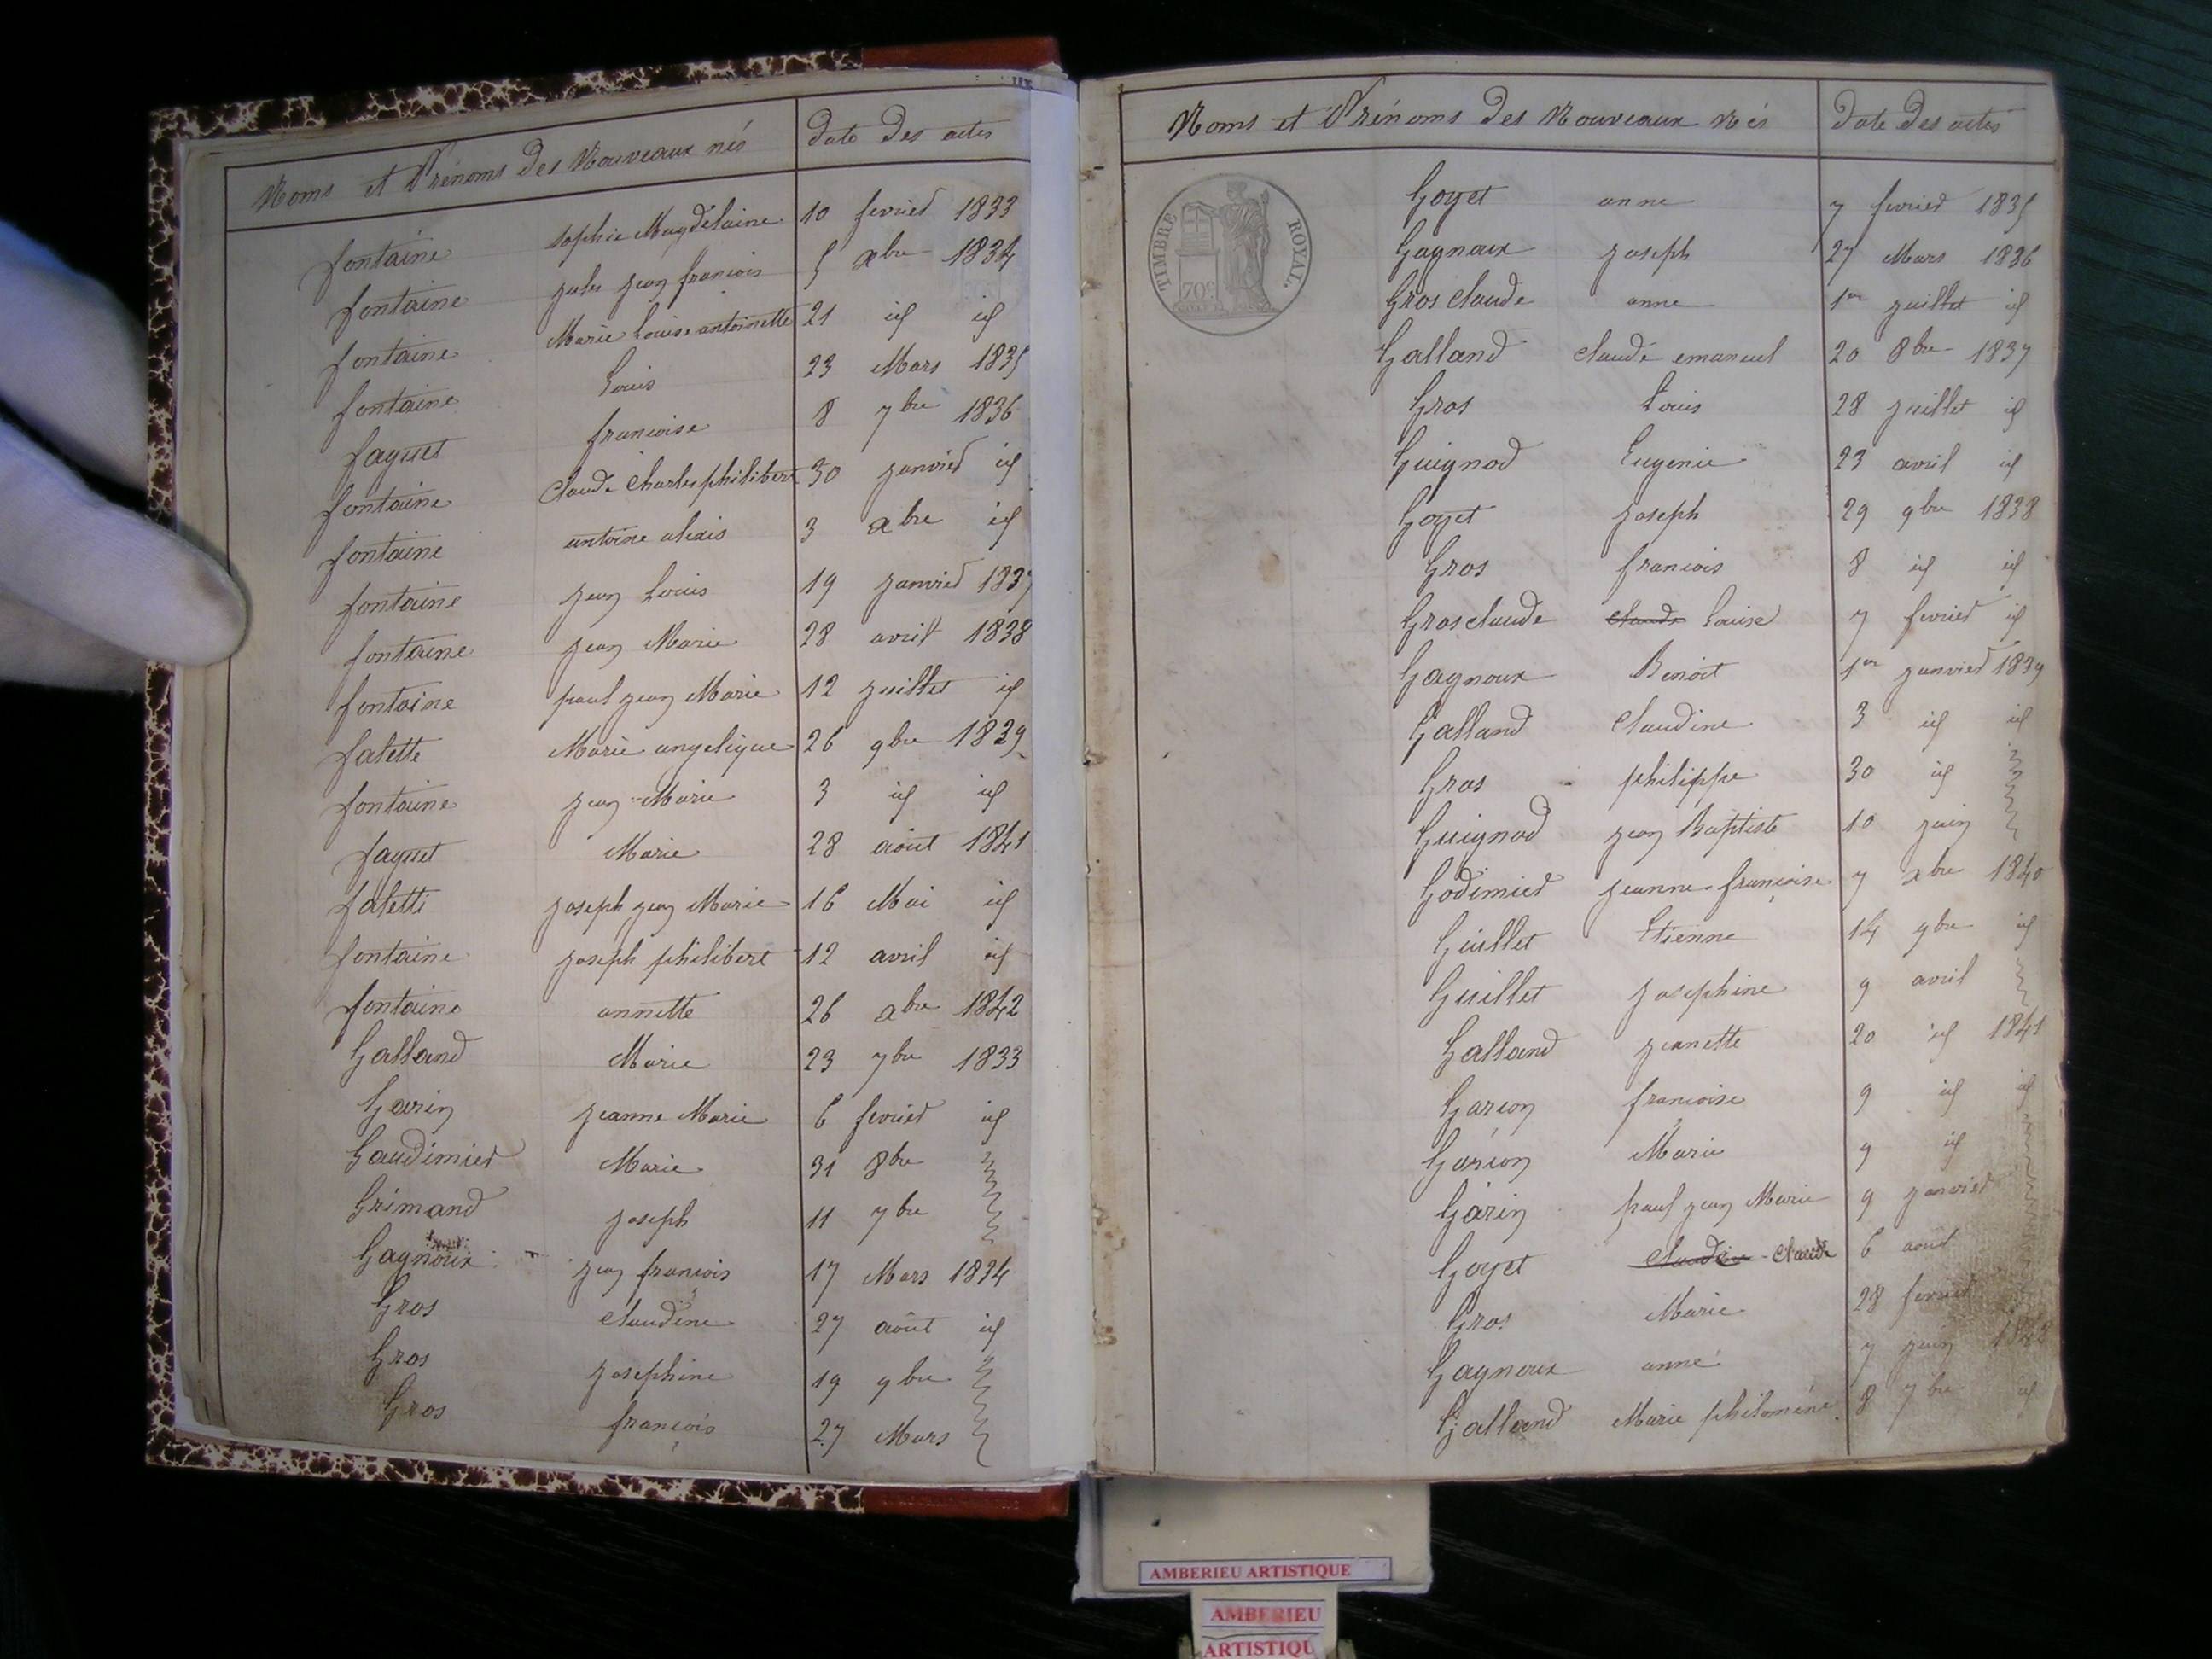 Noms et Prénoms des Nouveaux nés date des actes
fontaine sophie Magdelaine 10 fevrier 1833
fontaine jules jean francois 5 xbre 1834
fontaine Marie Louise antoinette 21 id id
fontaine Louis 23 Mars 1835
faguet francoise 8 7bre 1836
fontaine Claude Charles philibert 30 janvier id
fontaine antoine alexis 3 xbre id
fontaine jean Louis 19 janvier 1837
fontaine jean Marie 28 avril 1838
fontaine paul jean Marie 12 juillet id
falette Marie angelique 26 9bre 1839
fontaine jean Marie 3 id id
faguet Marie 28 août 1841
faletti joseph jean Marie 16 Mai id
fontaine joseph philibert 12 avril id
fontaine annette 26 xbre 1842
Galland Marie 23 7bre 1833
Garin jeanne Marie 6 fevrier id
Gaudimier Marie 31 8bre
Grimand joseph 11 7bre
Gagnoux jean françois 17 Mars 1834
Gros Claudine 27 août id
Gros josephine 19 9bre
Gros françois 27 Mars
Noms et Prénoms des Nouveaux nés date des actes
TIMBRE ROYAL
70c
Goyet anne 7 fevrier 1835
Gagnoux joseph 27 Mars 1836
Gros claude anne 1er juillet id
Galland claude emanuel 20 8bre 1837
Gros Louis 28 juillet id
Guignod Eugenie 23 avril id
Goyet joseph 29 9bre 1838
Gros francois 8 id id
Grosclaude claude Louise 7 fevrier id
Gagnoux Benoit 1er janvier 1839
Galland Claudine 3 id id
Gros philippe 30 id
Guignod jean Baptiste 10 juin
Godimier jeanne françoise 7 xbre 1840
Guillet Etienne 14 9bre id
Guillet josephine 9 avril
Galland jeanette 20 id 1841
Garçon françoise 9 id id
Garçon Marie 9 id
Garin paul jean Marie 9 janvier
Goyet Claudine Claude 6 aout
Gros Marie 28 fevrier
Gagnoux anne 7 juin 1842
Galland Marie philoméne 8 7bre id
AMBERIEU ARTISTIQUE
AMBERIEU
ARTISTIQU